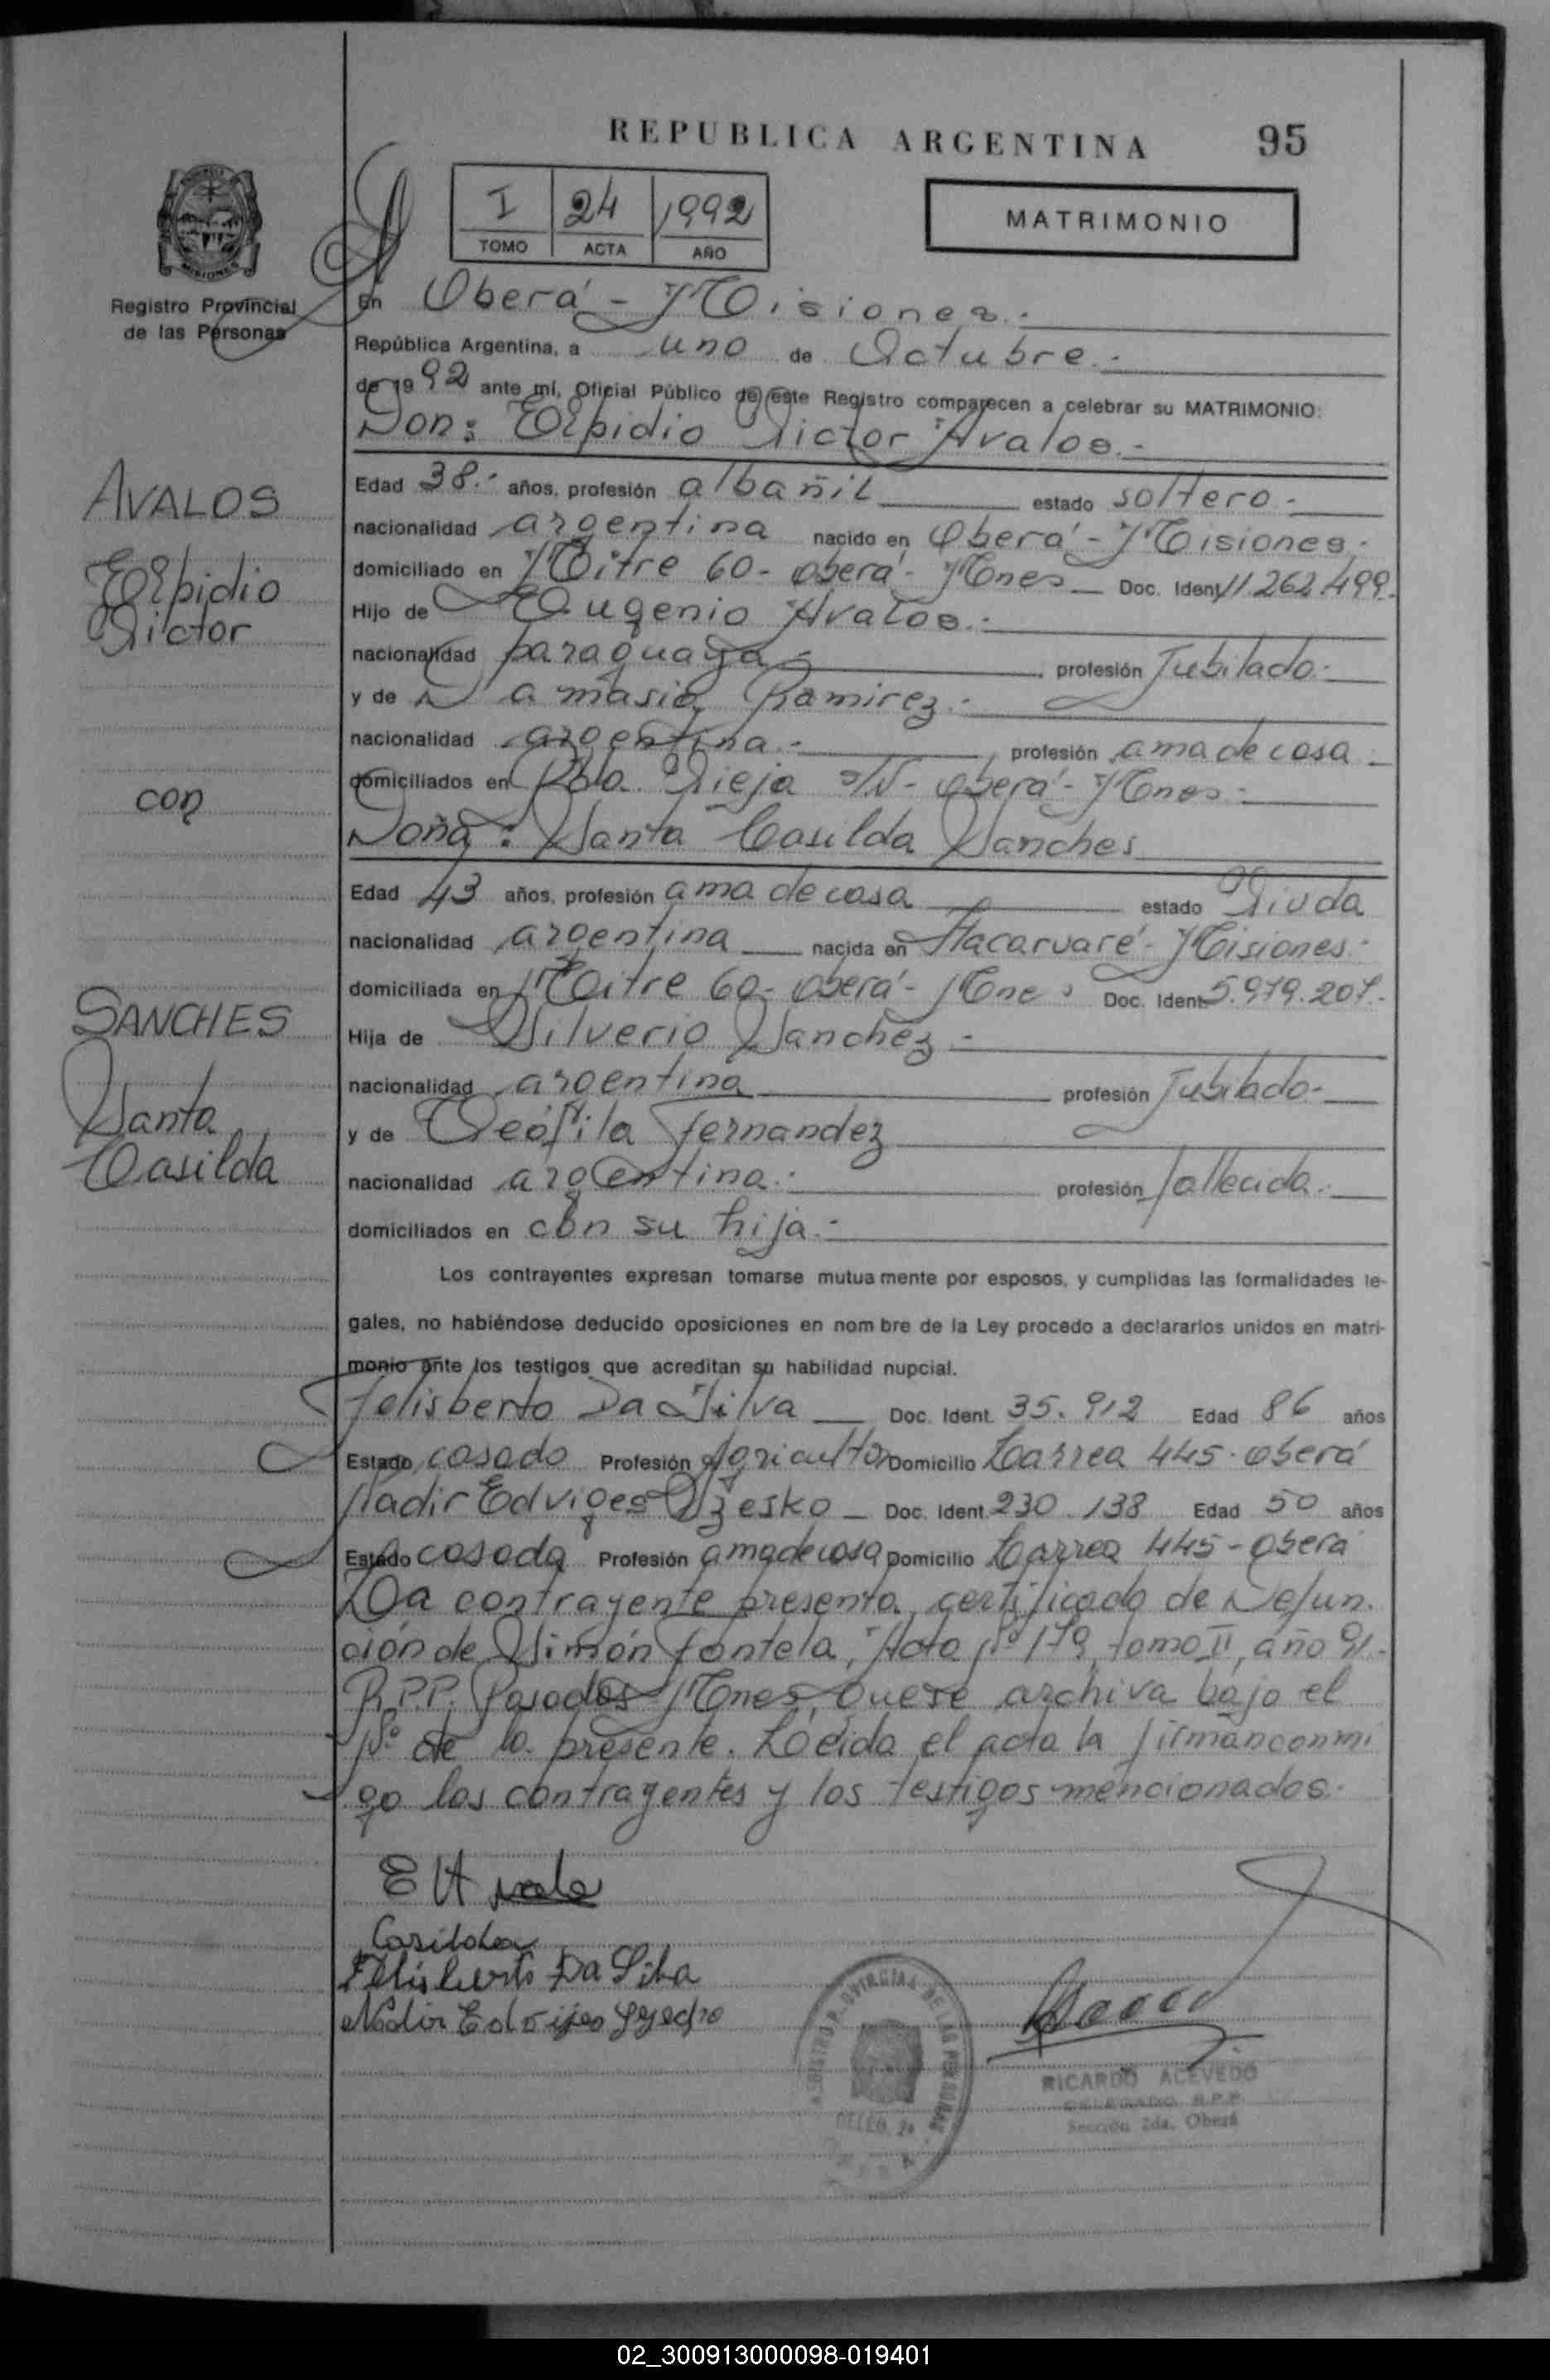 REPUBLICA ARGENTINA 95
I 24 1992
TOMO ACTA AÑO
MATRIMONIO
MISIONES
Registro Provincial
de las Personas
En Oberá - Misiones.-
República Argentina, a uno de Octubre.-
de 1992 ante mí, Oficial Público de este Registro comparecen a celebrar su MATRIMONIO:
Don: Elpidio Victor Avalos.-
AVALOS
Elpidio
Victor
con
SANCHES
Santa
Casilda
Edad 38.- años, profesión albañil estado soltero.-
nacionalidad argentina nacido en Oberá - Misiones.-
domiciliado en Mitre 60 - Oberá - Mnes Doc. Ident. 11.262.499.-
Hijo de Eugenio Avalos.-
nacionalidad paraguaya.- profesión Jubilado.-
y de Damasia Ramirez.-
nacionalidad argentina.- profesión ama de casa.-
domiciliados en Pbla. Vieja S/N - Oberá - Mnes.-
Doña: Santa Casilda Sanches
Edad 43 años, profesión ama de casa estado Viuda
nacionalidad argentina nacida en Itacaruaré - Misiones.-
domiciliada en Mitre 60 - Oberá - Mnes Doc. Ident. 5.979.207.-
Hija de Silverio Sanchez.-
nacionalidad argentina profesión Jubilado.-
y de Teófila Fernandez
nacionalidad argentina.- profesión fallecida.-
domiciliados en con su hija.-
Los contrayentes expresan tomarse mutua mente por esposos, y cumplidas las formalidades le-
gales, no habiéndose deducido oposiciones en nom bre de la Ley procedo a declararlos unidos en matri-
monio ante los testigos que acreditan su habilidad nupcial.
Felisberto Da Silva Doc. Ident. 35.912 Edad 86 años
Estado casado Profesión Agricultor Domicilio Larrea 445 - Oberá
Nadir Edviges Doc. Ident. 230.138 Edad 50 años
Estado casada Profesión ama de casa Domicilio Larrea 445 - Oberá
La contrayente presenta certificado de Defun.
ción de Simón Fontela, Acta Nº 179, tomo II, año 91.-
R.P.P. Posadas - Mnes, que se archiva bajo el
Nº de la presente. Leída el acta la firman conmi
go los contrayentes y los testigos mencionados.-
Casilda
Felisberto Da Silva
Nadir Edviges
REGISTRO PROVINCIAL DE LAS PERSONAS
DELEG. 2a
RICARDO ACEVEDO
DELEGADO R.P.P.
Sección 2da. Oberá
02_300913000098-019401